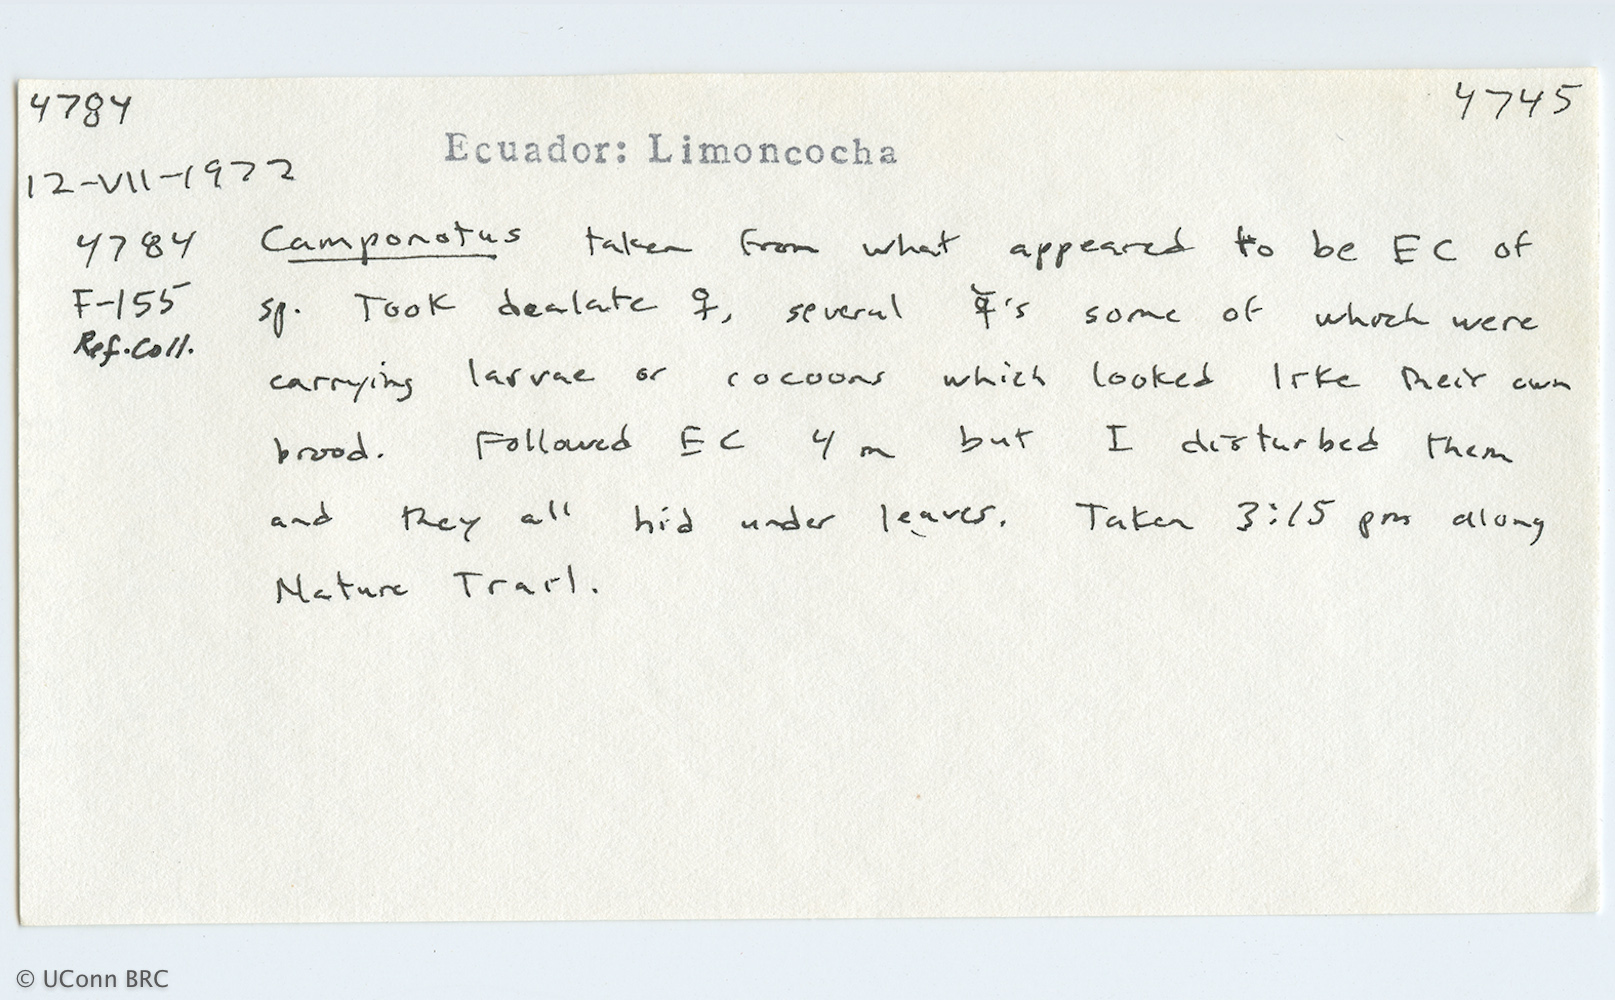 4784
4745
Ecuador: Limoncocha
12-VII-1972
4784 Camponotus taken from what appeared to be EC of
F-155 sp. Took dealate ♀, several ☿'s some of which were
Ref. Coll.
carrying larvae or cocoons which looked like their own
brood. Followed EC 4 m but I disturbed them
and they all hid under leaves. Taken 3:15 pm along
Nature Trail.
© UConn BRC